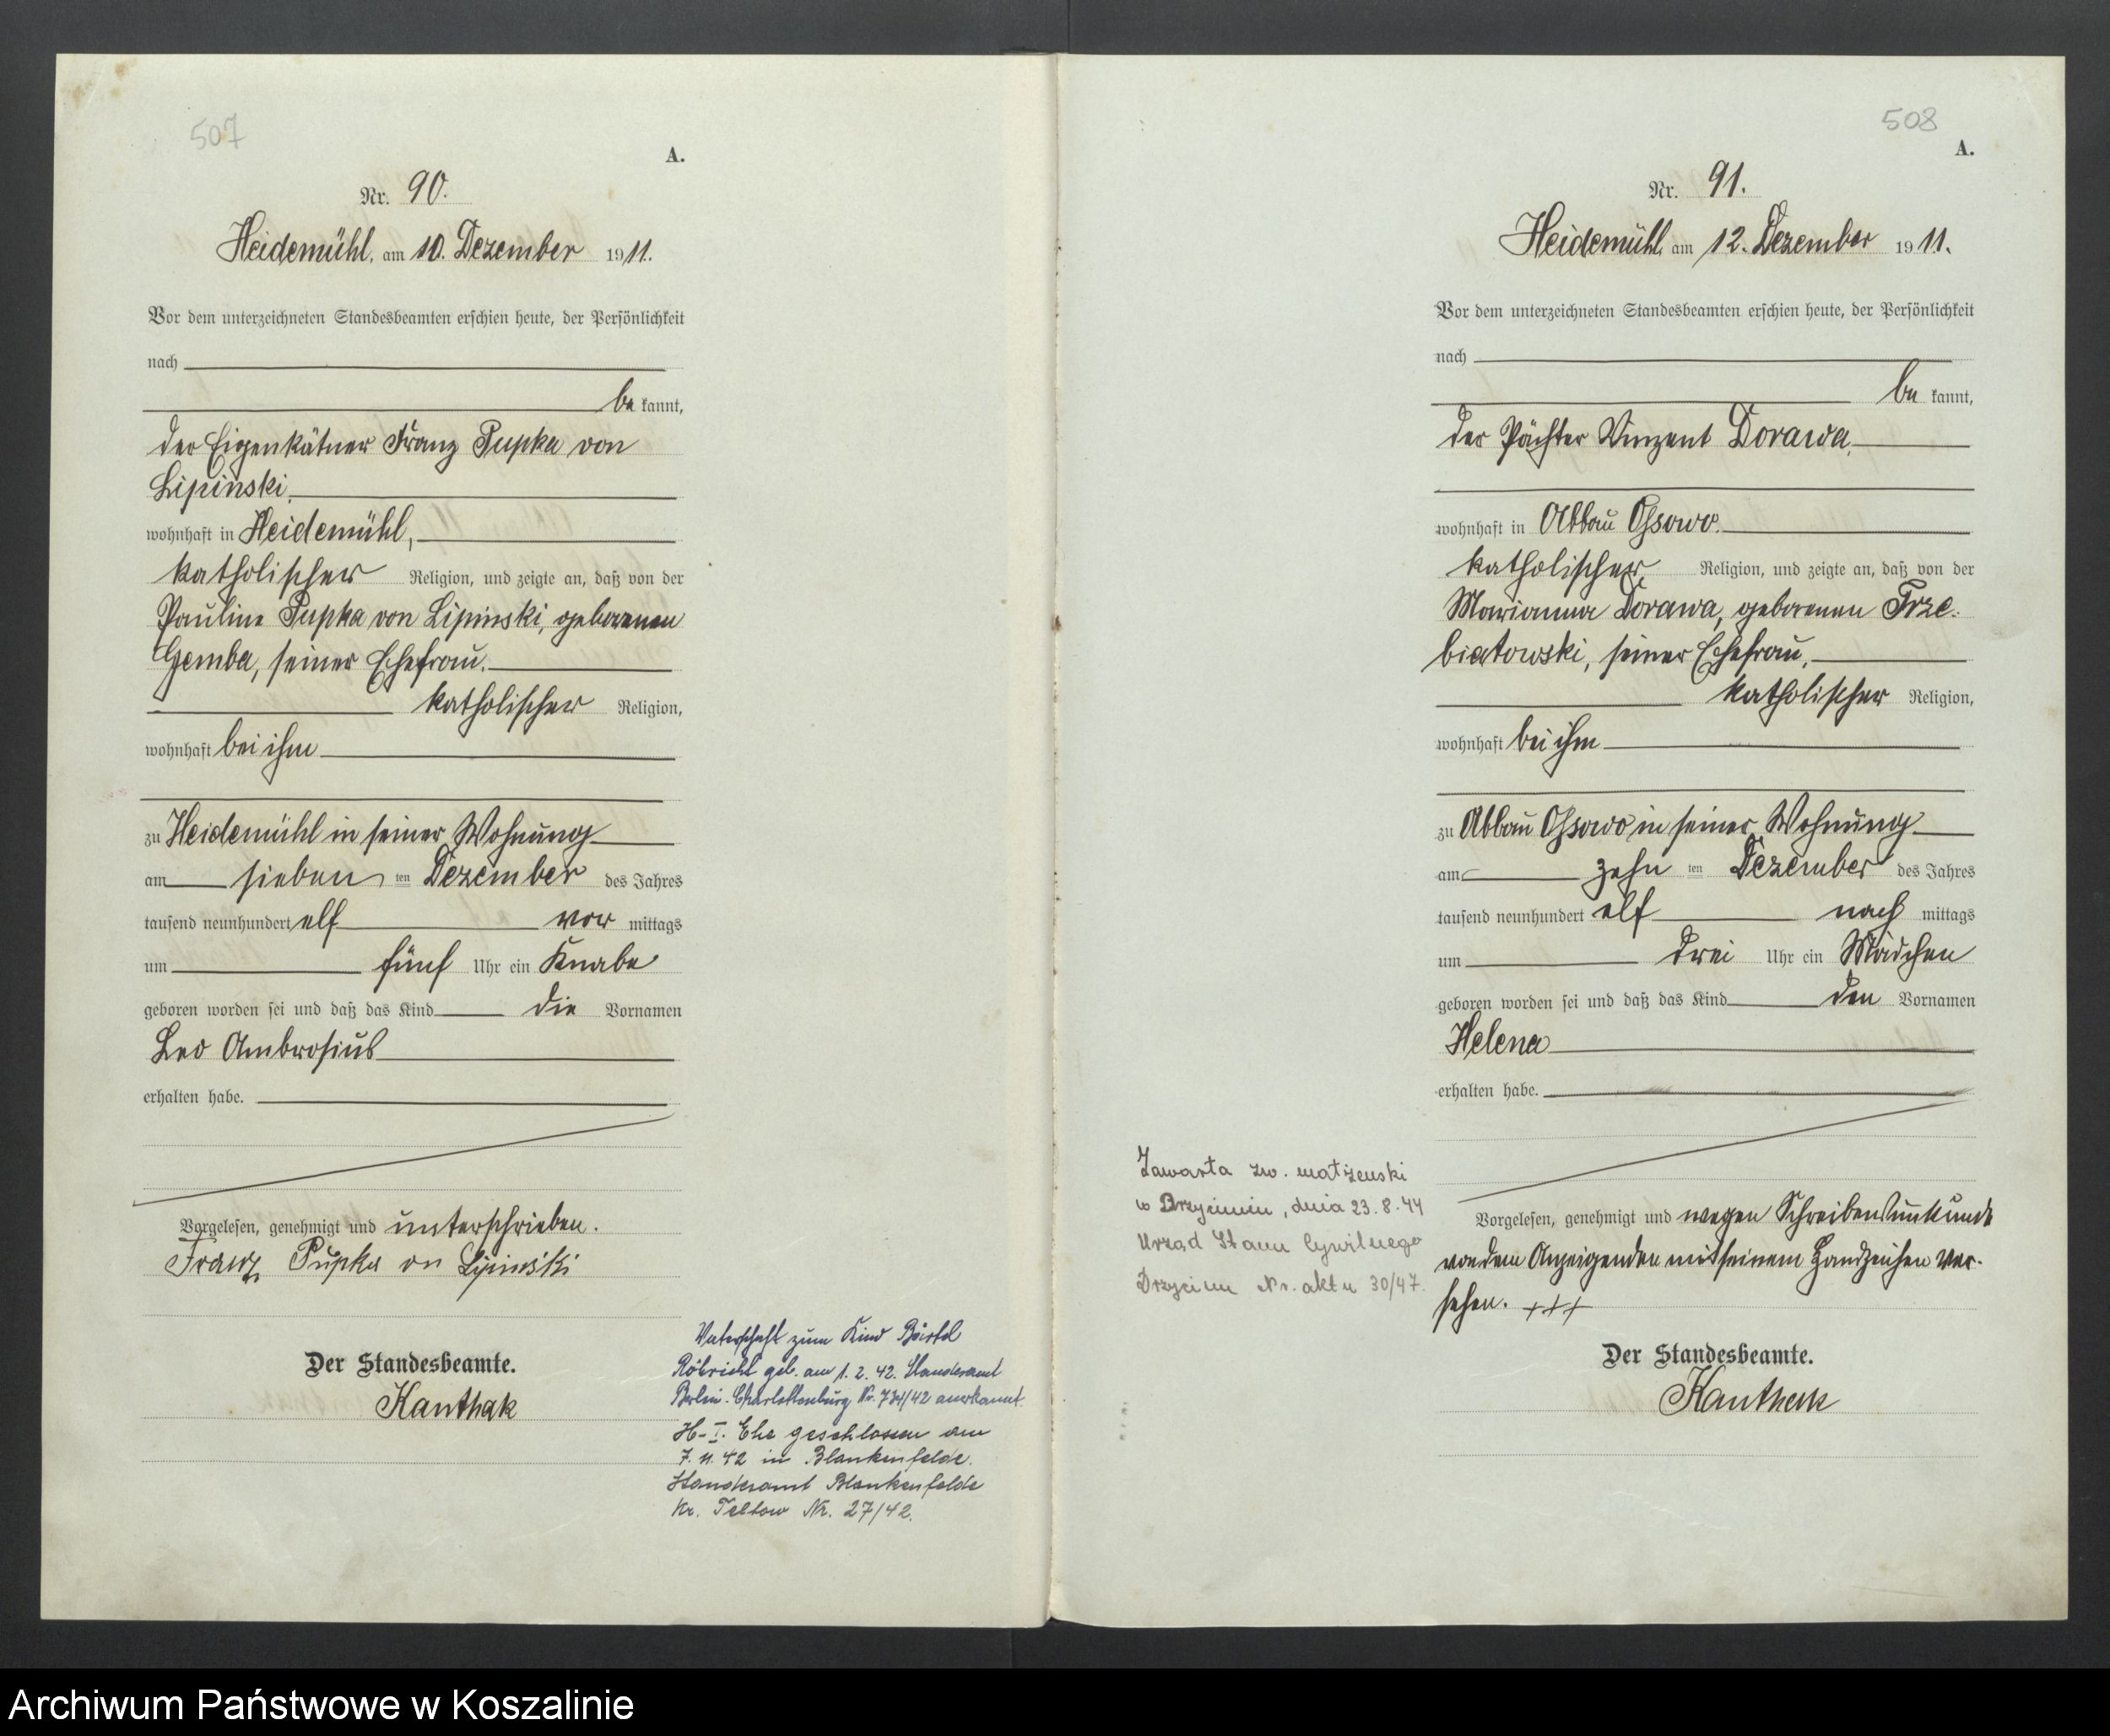 507
A.
Nr. 90.
Heidemühl, am 10. Dezember 1911.
Vor dem unterzeichneten Standesbeamten erschien heute, der Persönlichkeit
nach
be kannt,
der Eigenkätner Franz Pupka von
Lipinski,
wohnhaft in Heidemühl,
katholischer Religion, und zeigte an, daß von der
Pauline Pupka von Lipinski, geborenen
Gemba, seiner Ehefrau,
katholischer Religion,
wohnhaft bei ihm
zu Heidemühl in seiner Wohnung
am sieben ten Dezember des Jahres
tausend neunhundert elf vor mittags
um fünf Uhr ein Knabe
geboren worden sei und daß das Kind die Vornamen
Leo Ambrosius
erhalten habe.
Vorgelesen, genehmigt und unterschrieben.
Franz Pupka on Lipinski
Der Standesbeamte.
Kanthak
Vaterschaft zum Kind Bärbel
Röbricht geb. am 1. 2. 42. Standesamt
Berlin-Charlottenburg Nr. 734/42 anerkannt.
H-I. Ehe geschlossen am
7. 11. 42 in Blankenfelde.
Standesamt Blankenfelde
Kr. Teltow Nr. 27/42.
508
A.
Nr. 91.
Heidemühl, am 12. Dezember 1911.
Vor dem unterzeichneten Standesbeamten erschien heute, der Persönlichkeit
nach
be kannt,
der Pächter Vinzent Dorawa,
wohnhaft in Abbau Ossowo,
katholischer Religion, und zeigte an, daß von der
Marianna Dorawa, geborenen Trze-
biatowski, seiner Ehefrau,
katholischer Religion,
wohnhaft bei ihm
zu Abbau Ossowo in seiner Wohnung
am zehn ten Dezember des Jahres
tausend neunhundert elf nach mittags
um drei Uhr ein Mädchen
geboren worden sei und daß das Kind den Vornamen
Helena
erhalten habe.
Zawarta zw. małżeński
w Drzycimiu, dnia 23.8.44
Urząd Stanu Cywilnego
Drzycim Nr. aktu 30/47.
Vorgelesen, genehmigt und wegen Schreibensunkunde
von dem Anzeigenden mit seinem Handzeichen ver-
sehen. +++
Der Standesbeamte.
Kanthak
Archiwum Państwowe w Koszalinie